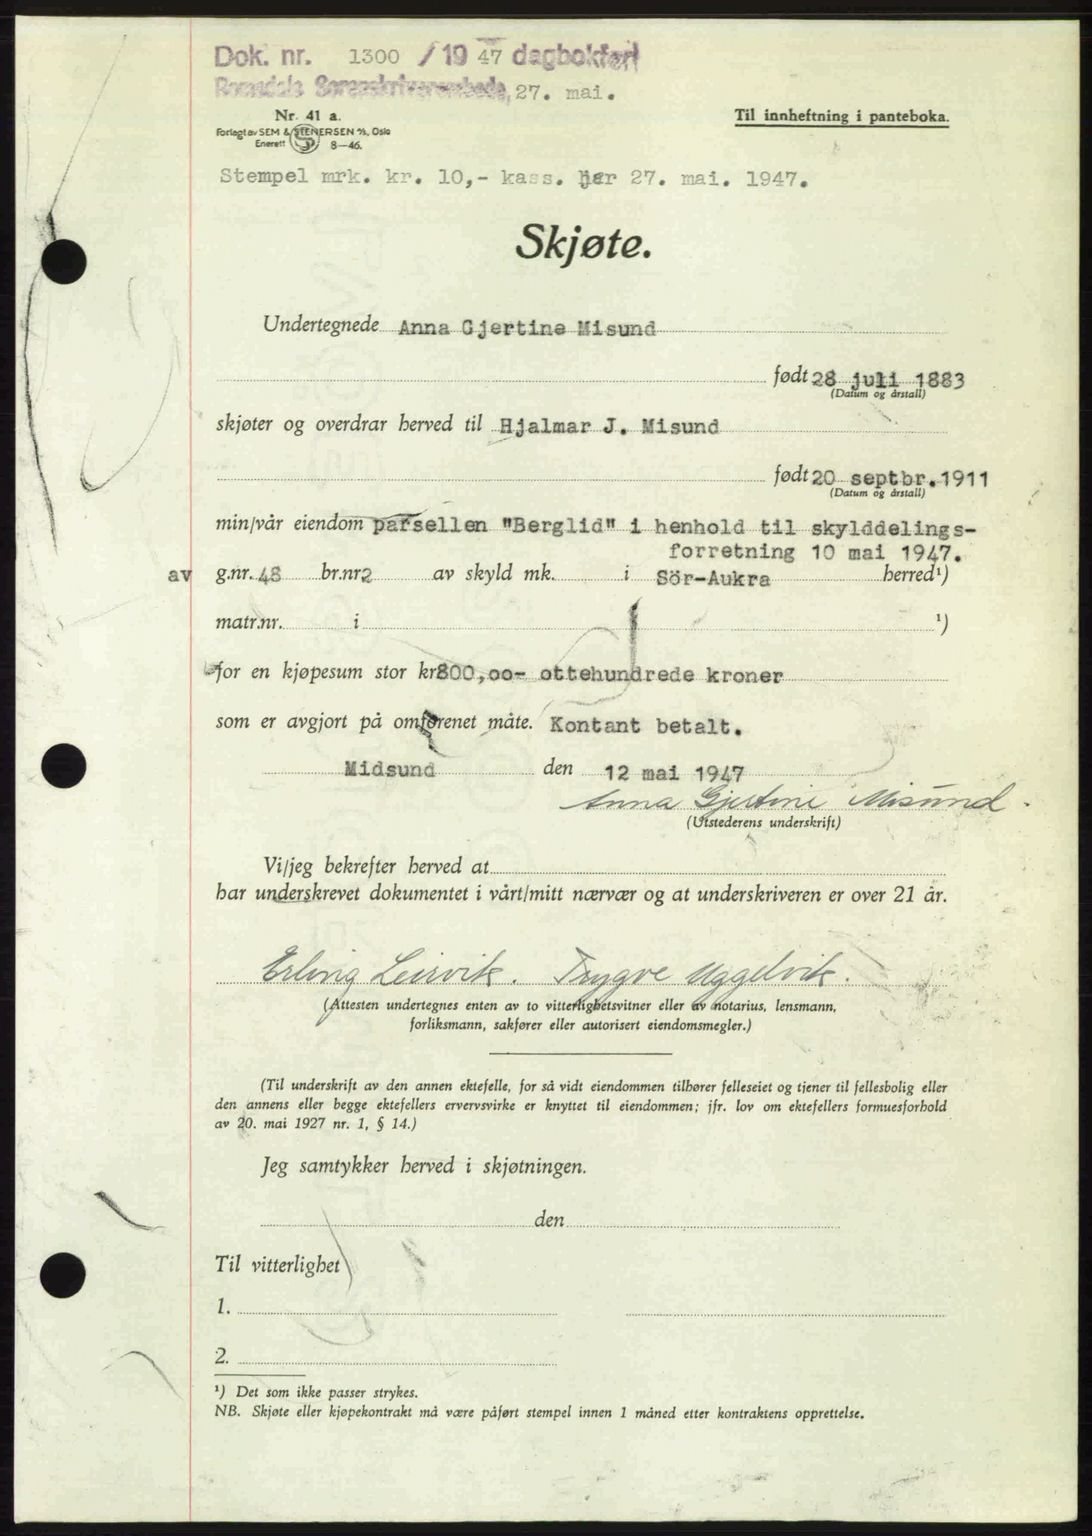 Dok. nr. 1300 /19 47 dagbokført
Romsdals Sorenskriverembede, 27. mai.
Nr. 41 a.
Til innheftning i panteboka.
Forlagt av SEM & STENERSEN A/S, Oslo
Enerett 8—46.
Stempel mrk. kr. 10,- kass. her 27. mai. 1947.
Skjøte.
Undertegnede Anna Gjertine Misund
født 28 juli 1883
(Datum og årstall)
skjøter og overdrar herved til Hjalmar J. Misund
født 20 septbr. 1911
(Datum og årstall)
min/vår eiendom parsellen "Berglid" i henhold til skylddelings-
forretning 10 mai 1947.
av g.nr. 48 br.nr 2 av skyld mk. i Sör-Aukra herred¹)
matr.nr. i ¹)
for en kjøpesum stor kr 800,oo- ottehundrede kroner
som er avgjort på omforenet måte. Kontant betalt.
Midsund den 12 mai 1947
Anna Gjertine Misund.
(Utstederens underskrift)
Vi/jeg bekrefter herved at
har underskrevet dokumentet i vårt/mitt nærvær og at underskriveren er over 21 år.
Erling Leirvik. Trygve Uggelvik.
(Attesten undertegnes enten av to vitterlighetsvitner eller av notarius, lensmann,
forliksmann, sakfører eller autorisert eiendomsmegler.)
(Til underskrift av den annen ektefelle, for så vidt eiendommen tilhører felleseiet og tjener til fellesbolig eller
den annens eller begge ektefellers ervervsvirke er knyttet til eiendommen; jfr. lov om ektefellers formuesforhold
av 20. mai 1927 nr. 1, § 14.)
Jeg samtykker herved i skjøtningen.
den
Til vitterlighet
1.
2.
¹) Det som ikke passer strykes.
NB. Skjøte eller kjøpekontrakt må være påført stempel innen 1 måned etter kontraktens opprettelse.